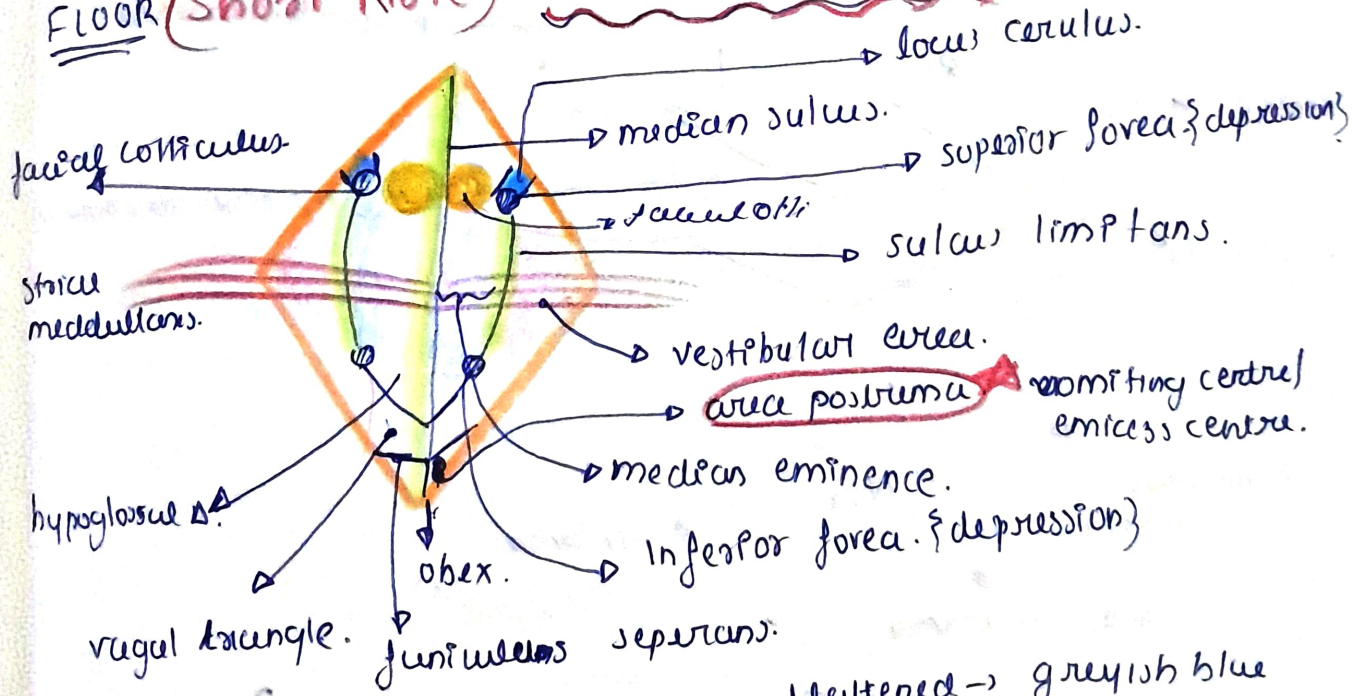 FLOOR (Short Note)
locus cerulus.
median sulcus.
facial colliculus.
superior fovea {depression}
sulcus limitans.
striae
meddullaris.
vestibular area.
area postrema
vomiting centre/
emicess centre.
median eminence.
hypoglossal Δ.
Inferior fovea. {depression}
obex.
vagal triangle.
funiculus seperans.
greyish blue